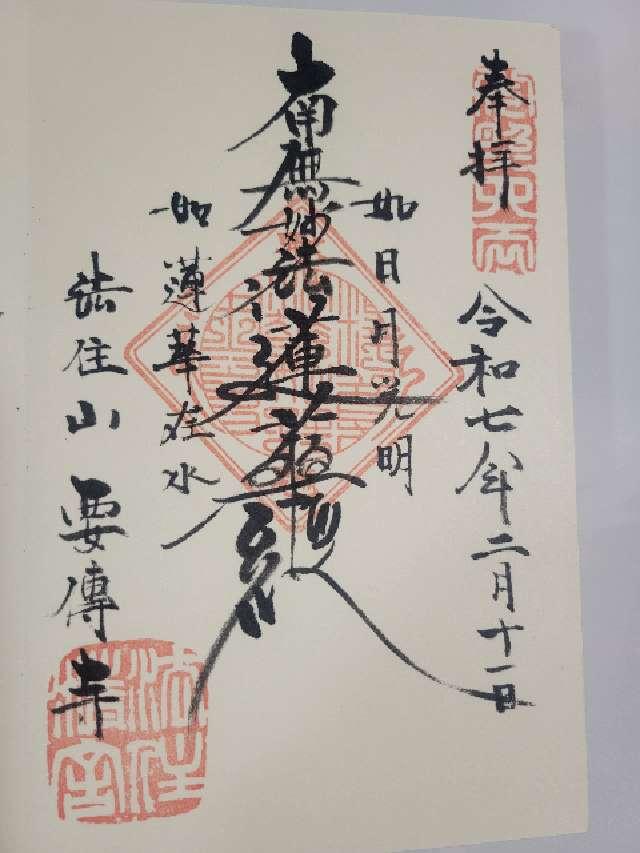 奉拝
令和七年二月十一日
如日月光明
南無妙法蓮華経
如蓮華在水
法住山 要傳寺